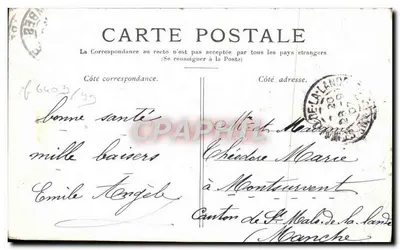 CARTE POSTALE
La Correspondance au recto n'est pas acceptée par tous les pays étrangers
(Se renseigner à la Poste)
Côté correspondance.
Côté adresse.
bonne santé
mille baisers
Emile Angèle
Théodore Marie
à Montsurvent
Canton de St Malo de la lande
Manche
Cartorum